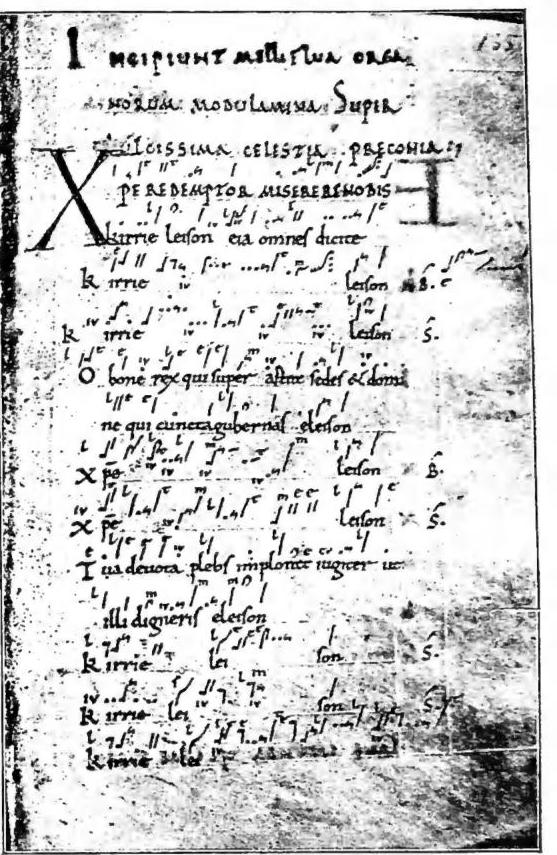 155
INCIPIUNT MELLIFLUA ORGA
NORUM MODULAMINA SUPER
DULCISSIMA CELESTIA PRECONIA
XPE REDEMPTOR MISERERE NOBIS
kirrie leison eia omnes dicite
kirrie leison B.
kirrie leison S.
O bone rex qui super astra sedes & domi
ne qui cuncta gubernas eleison
Xpe leison B.
Xpe leison S.
Tua devota plebs implorat iugiter ut
illi digneris eleison
kirrie lei son S.
kirrie lei son S.
kirrie lei